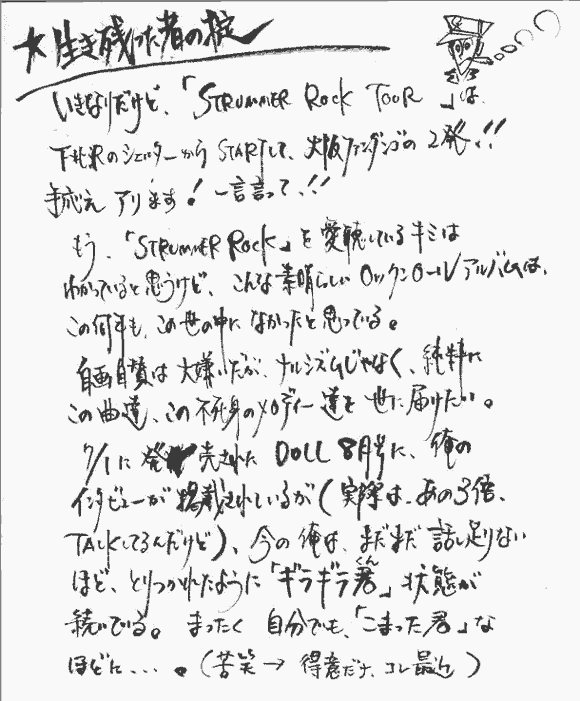 ★生き残った者の掟
いきなりだけど、「STRUMMER ROCK TOUR」は、
下北沢のシェルターからSTARTして、大阪ファンダンゴの2発!!
手応えアリます!一言言って!!
もう、「STRUMMER ROCK」を愛聴しているキミは
わかっていると思うけど、こんな素晴らしいロックンロールアルバムは、
この何年も、この世の中になかったと思っている。
自画自賛は大嫌いだが、ナルシズムじゃなく、純粋に
この曲達、この不死身のメロディー達を世に届けたい。
7/1に発売された DOLL 8月号に、俺の
インタビューが掲載されているが(実際は、あの3倍、
TALKしてるんだけど)、今の俺は、まだまだ話し足りない
ほど、とりつかれたように「ギラギラ君くん」状態が
続いている。まったく自分でも、「こまった君」な
ほどに...。(苦笑→得意だナ、コレ最近)